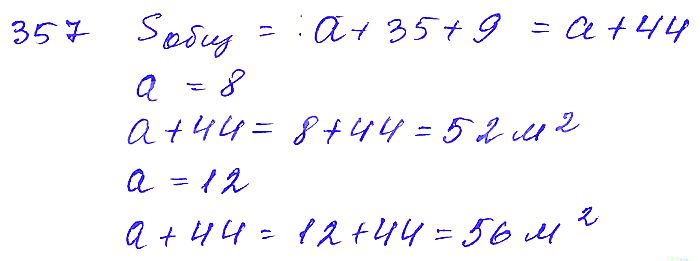 357 Sобщ = a + 35 + 9 = a + 44
a = 8
a + 44 = 8 + 44 = 52 м²
a = 12
a + 44 = 12 + 44 = 56 м²